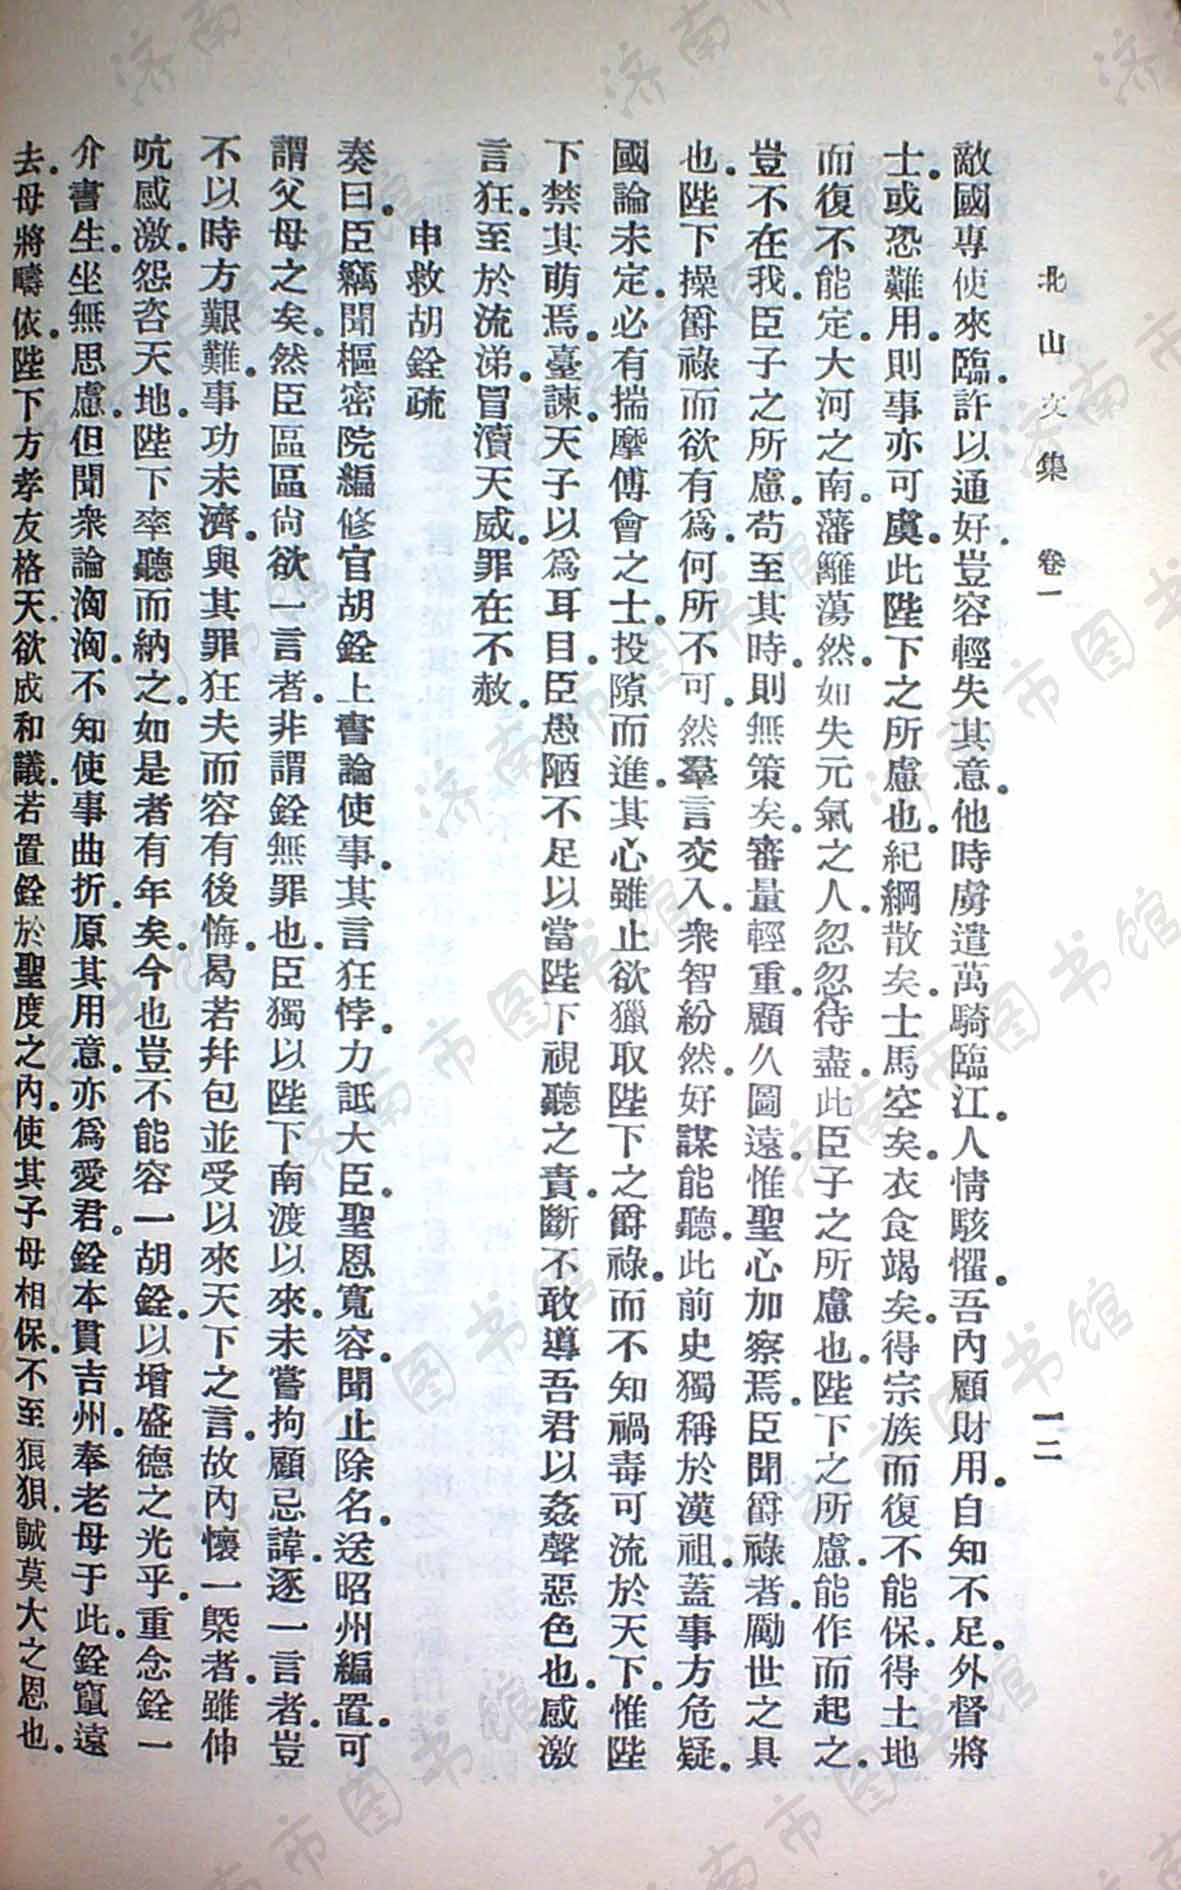 北山文集　卷一　一二
敵國專使來臨。許以通好。豈容輕失其意。他時虜遣萬騎臨江。人情駭懼。吾內顧財用。自知不足。外督將
士。或恐難用。則事亦可虞。此陛下之所慮也。紀綱散矣。士馬空矣。衣食竭矣。得宗族而復不能保。得土地
而復不能定。大河之南。藩籬蕩然。如失元氣之人。忽忽待盡。此臣子之所慮也。陛下之所慮。能作而起之。
豈不在我。臣子之所慮。苟至其時。則無策矣。審量輕重。顧久圖遠。惟聖心加察焉。臣聞爵祿者。勵世之具
也。陛下操爵祿而欲有爲。何所不可。然羣言交入。衆智紛然。好謀能聽。此前史獨稱於漢祖。蓋事方危疑。
國論未定。必有揣摩傅會之士。投隙而進。其心雖止欲獵取陛下之爵祿。而不知禍毒可流於天下。惟陛
下禁其萌焉。臺諫。天子以爲耳目。臣愚陋不足以當陛下視聽之責。斷不敢導吾君以姦聲惡色也。感激
言狂。至於流涕。冒瀆天威。罪在不赦。
申救胡銓疏
奏曰。臣竊聞樞密院編修官胡銓上書論使事。其言狂悖。力詆大臣。聖恩寬容。聞止除名。送昭州編置。可
謂父母之矣。然臣區區尚欲一言者。非謂銓無罪也。臣獨以陛下南渡以來。未嘗拘顧忌諱。逐一言者。豈
不以時方艱難。事功未濟。與其罪狂夫而容有後悔。曷若幷包並受以來天下之言。故內懷一槩者。雖伸
吭感激。怨咨天地。陛下率聽而納之。如是者有年矣。今也豈不能容一胡銓。以增盛德之光乎。重念銓一
介書生。坐無思慮。但聞衆論洶洶。不知使事曲折。原其用意。亦爲愛君。銓本貫吉州。奉老母于此。銓竄遠
去。母將疇依。陛下方孝友格天。欲成和議。若置銓於聖度之內。使其子母相保。不至狼狽。誠莫大之恩也。